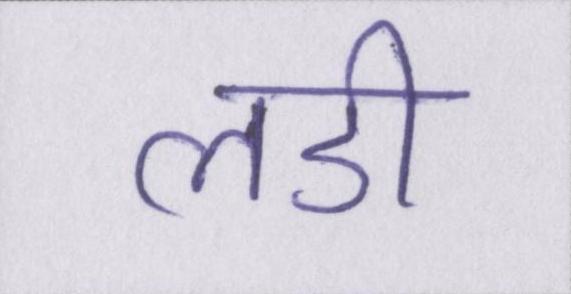 लडी